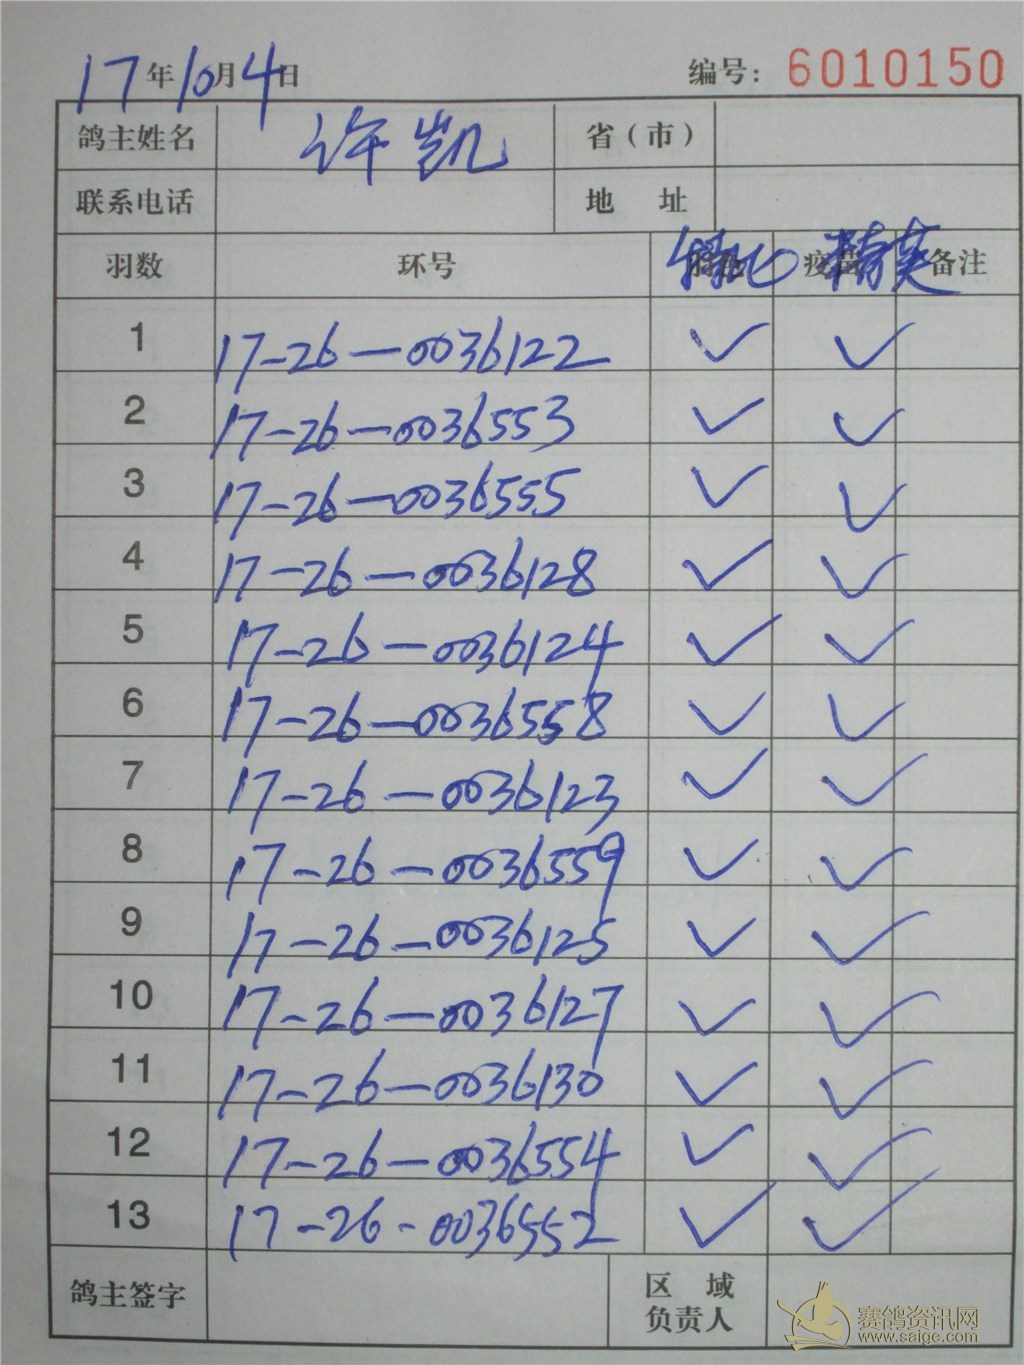 17年10月4日 编号: 6010150
鸽主姓名 许凯 省(市)
联系电话 地 址
羽数 环号 特比 疫苗 精英 备注
1 17-26-0036122 ✓ ✓
2 17-26-0036553 ✓ ✓
3 17-26-0036555 ✓ ✓
4 17-26-0036128 ✓ ✓
5 17-26-0036124 ✓ ✓
6 17-26-0036558 ✓ ✓
7 17-26-0036123 ✓ ✓
8 17-26-0036559 ✓ ✓
9 17-26-0036125 ✓ ✓
10 17-26-0036127 ✓ ✓
11 17-26-0036130 ✓ ✓
12 17-26-0036554 ✓ ✓
13 17-26-0036552 ✓ ✓
鸽主签字 区 域
负责人
赛鸽资讯网
www.saige.com